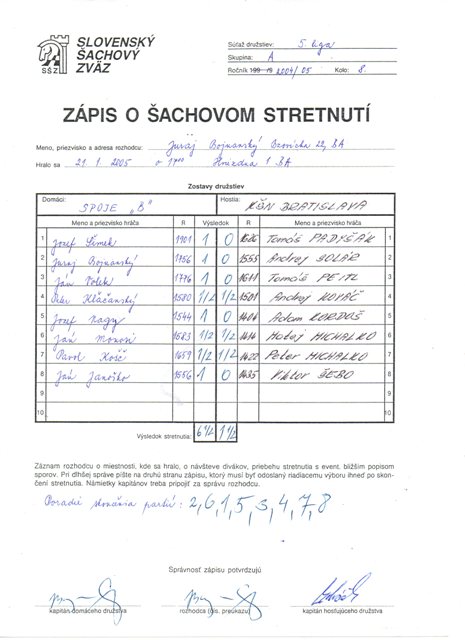 SLOVENSKÝ
ŠACHOVÝ
ZVÄZ
SŠZ
Súťaž družstiev: 5. liga
Skupina: A
Ročník 199 /9 2004/05 Kolo: 8.
ZÁPIS O ŠACHOVOM STRETNUTÍ
Meno, priezvisko a adresa rozhodcu: Juraj Bojnanský 22, BA
Hralo sa 21. 1. 2005 o 17 00 1 BA
Zostavy družstiev
Domáci: SPOJE "B" Hostia: KŠN BRATISLAVA
Meno a priezvisko hráča R Výsledok R Meno a priezvisko hráča
1 Jozef Šimek 1901 1 0 Tomáš PADYŠÁK 1
2 Juraj Bojnanský 1756 1 0 1555 Andrej 2
3 Ján 1776 1 0 1611 Tomáš PEITL 3
4 1580 1/2 1/2 1501 Andrej KOVÁČ 4
5 Jozef Nagy 1544 1 0 1404 Adam 5
6 Ján 1683 1/2 1/2 1414 Matej MICHALKO 6
7 Pavol Košč 1659 1/2 1/2 1422 Peter MICHALKO 7
8 Ján Janoško 1556 1 0 1435 Viktor ŠEBO 8
9 9
10 10
Výsledok stretnutia: 6 1/2 1 1/2
Záznam rozhodcu o miestnosti, kde sa hralo, o návšteve divákov, priebehu stretnutia s event. bližším popisom
sporov. Pri dlhšej správe píšte na druhú stranu zápisu, ktorý musí byť odoslaný riadiacemu výboru ihneď po skon-
čení stretnutia. Námietky kapitánov treba pripojiť za správu rozhodcu.
Poradie skončenia partií: 2, 6, 1, 5, 3, 4, 7, 8
Správnosť zápisu potvrdzujú
kapitán domáceho družstva rozhodca (čís. preukazu) kapitán hosťujúceho družstva